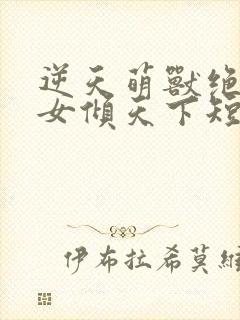 逆天萌獸绝
女傾天下短
伊布拉希莫維